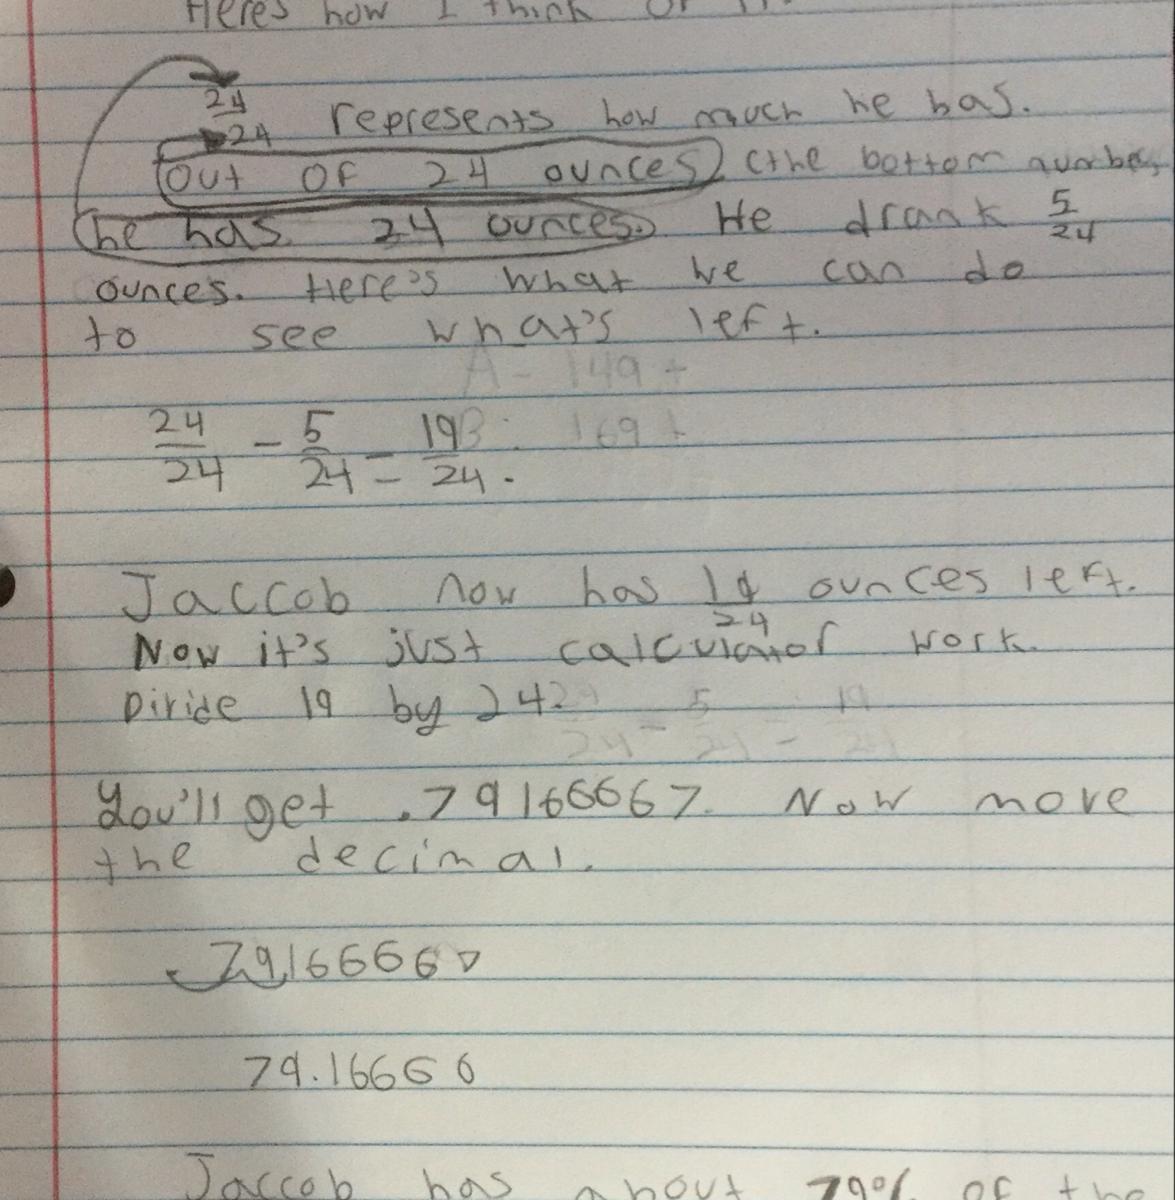 Here's how I think of it.
24
24 represents how much he has.
(Out of 24 ounces) (the bottom number,
he has 24 ounces. He drank 5/24
ounces. Here's what we can do
to see what's left.
A- 149 +
B: 169 +
24/24 - 5/24 = 19/24.
Jaccob now has 19/24 ounces left.
Now it's just calculator work.
Divide 19 by 24.
5 19
24 - 24 = 24
You'll get .79166667. Now move
the decimal.
.79166667
79.16666
Jaccob has about 79% of the